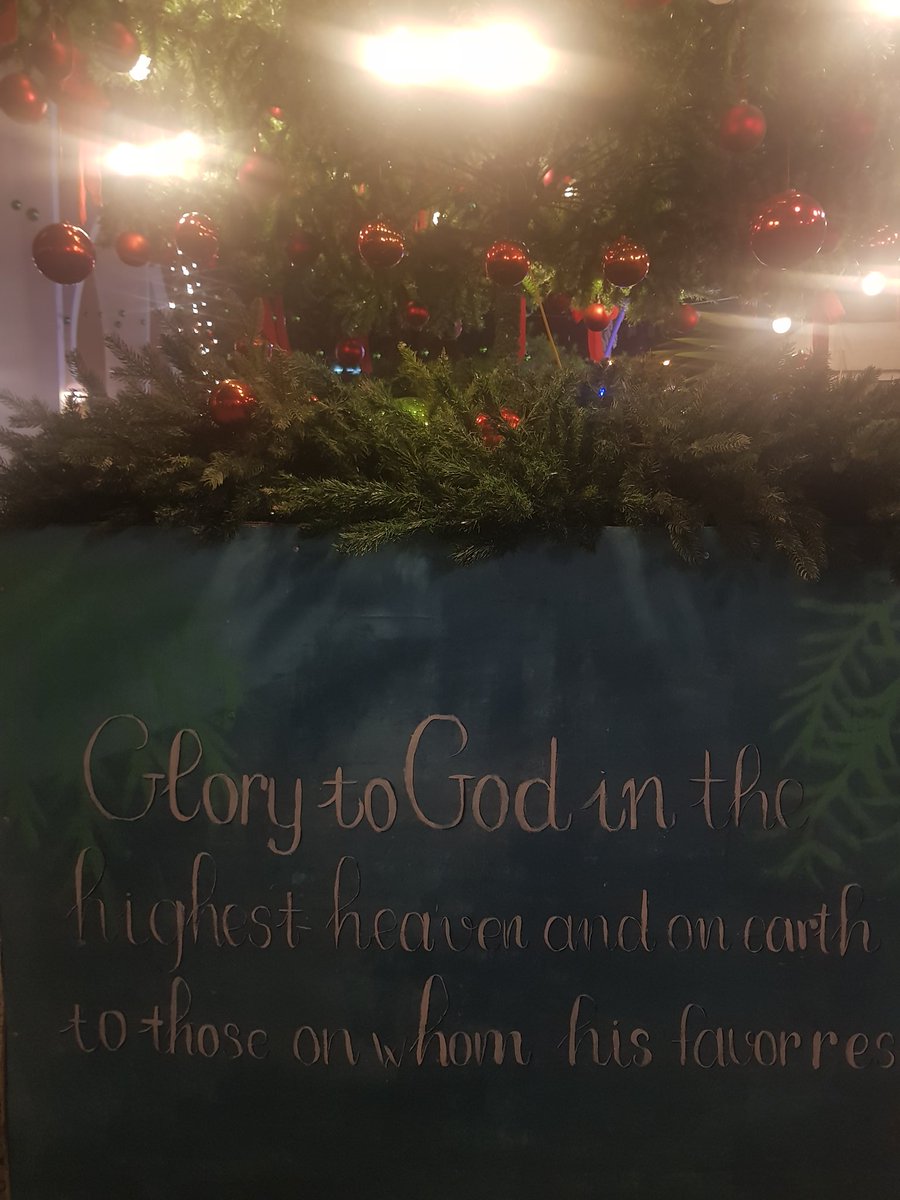 Glory to God in the
highest heaven and on earth
to those on whom his favor res